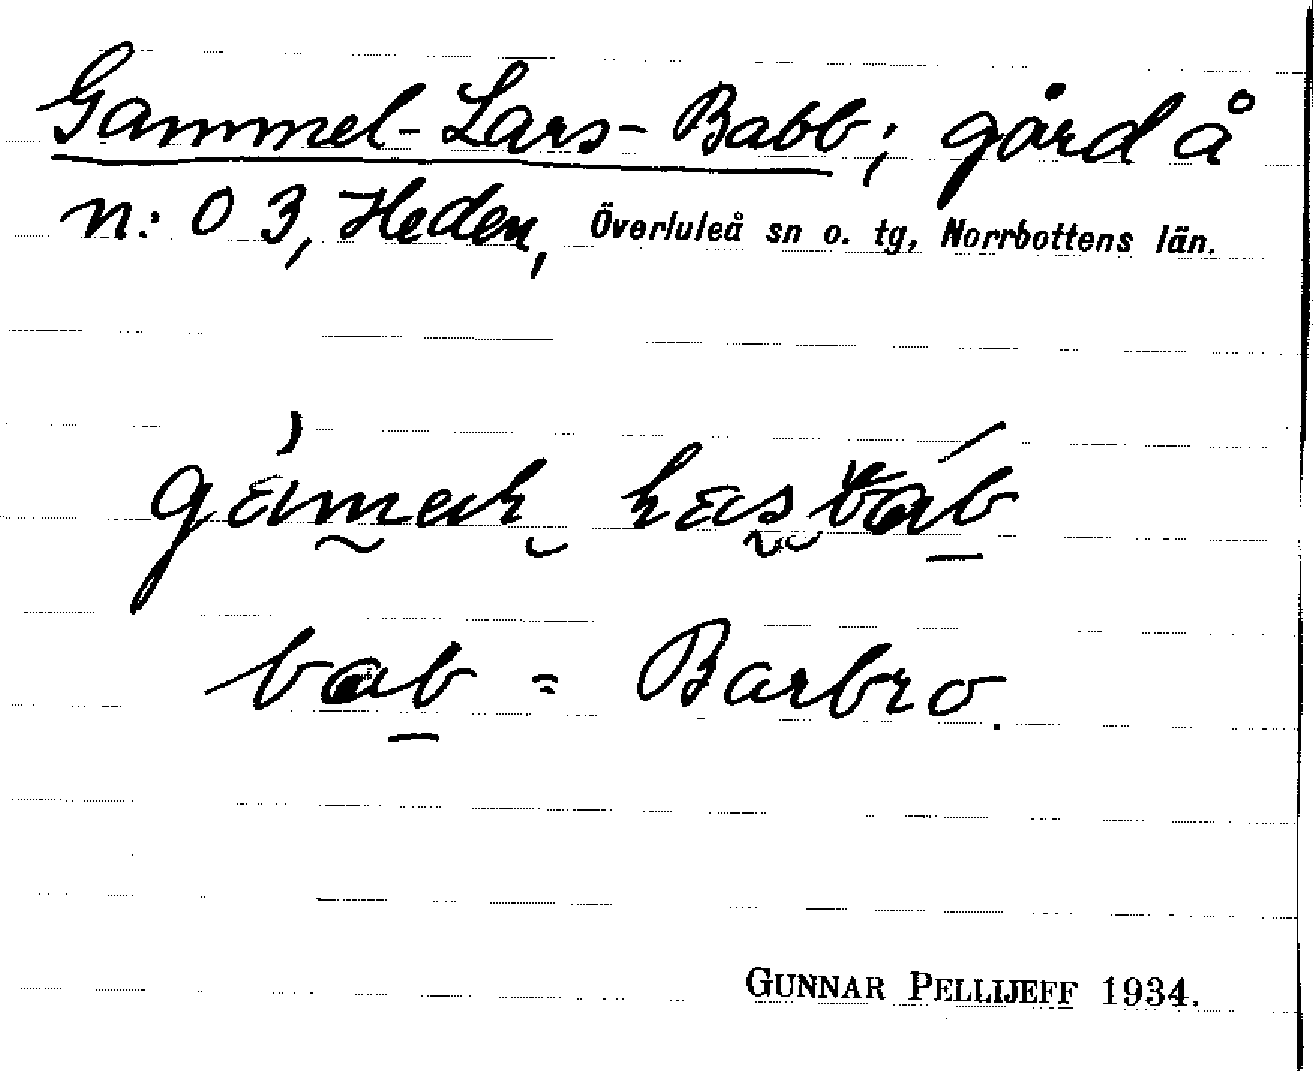 Gammel-Lars-Babb; gård å
n:o 3, Heden, Överluleå sn o. tg, Norrbottens län.
bab = Barbro.
GUNNAR PELLIJEFF 1934.